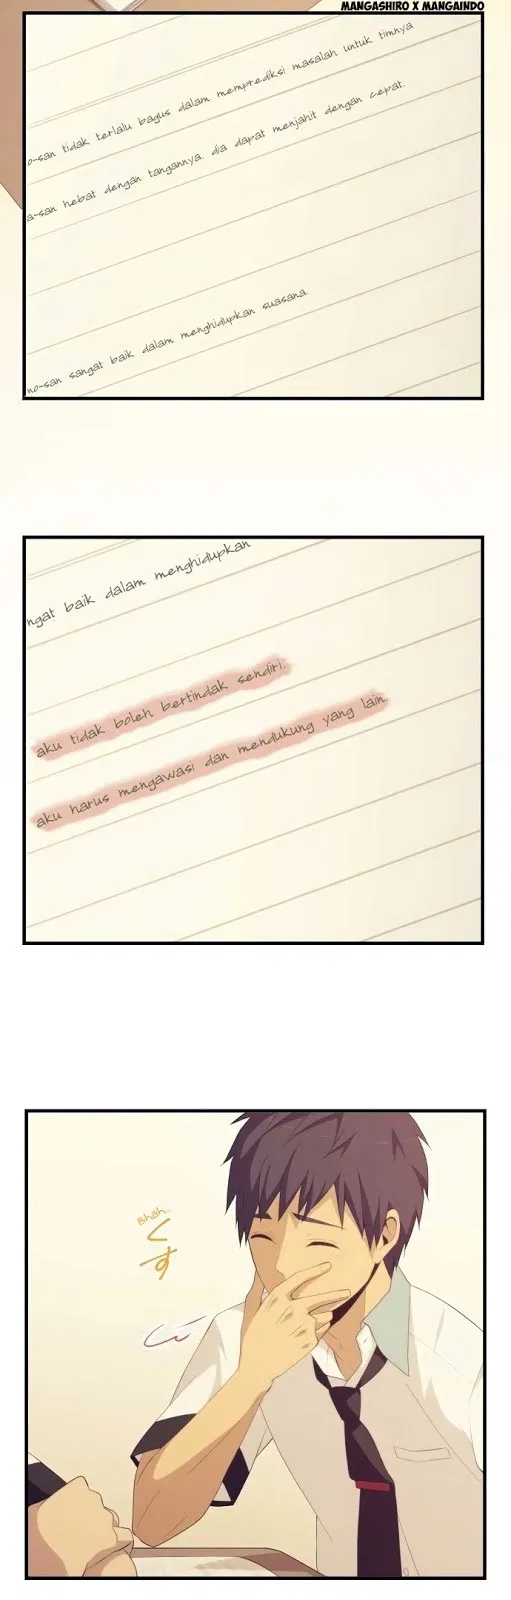 MANGASHIRO X MANGAINDO
o-san tidak terlalu bagus dalam memprediksi masalah untuk timnya
a-san hebat dengan tangannya. dia dapat menjahit dengan cepat.
no-san sangat baik dalam menghidupkan suasana.
ngat baik dalam menghidupkan
aku tidak boleh bertindak sendiri.
aku harus mengawasi dan mendukung yang lain.
Bhah..
くす